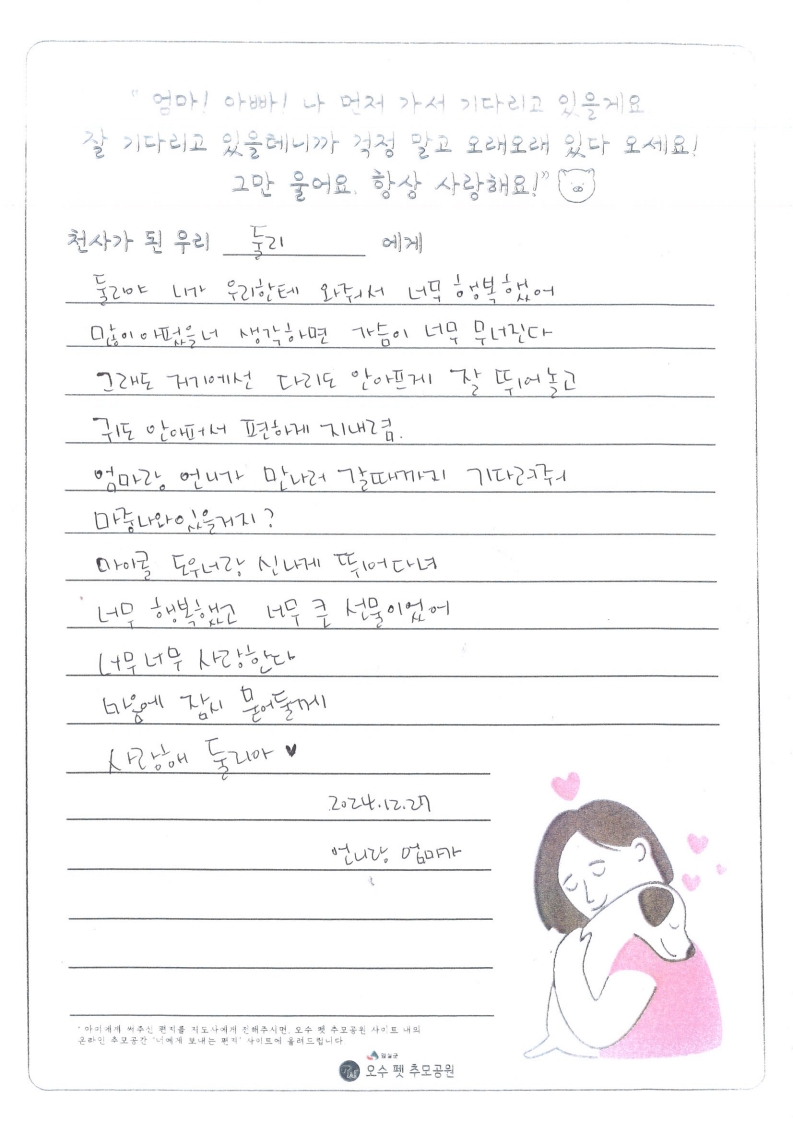 " 엄마! 아빠! 나 먼저 가서 기다리고 있을게요
잘 기다리고 있을테니까 걱정 말고 오래오래 있다 오세요!
그만 울어요, 항상 사랑해요!"
천사가 된 우리 둘리 에게
둘리야 니가 우리한테 와줘서 너무 행복했어
많이아펐을너 생각하면 가슴이 너무 무너진다
그래도 거기에선 다리도 안아프게 잘 뛰어놀고
귀도 안아퍼서 편하게 지내렴.
엄마랑 언니가 만나러 갈때까지 기다려줘
마중나와있을거지?
마이콜 도우너랑 신나게 뛰어다녀
너무 행복했고 너무 큰 선물이었어
너무너무 사랑한다
마음에 잠시 묻어둘께
사랑해 둘리야 ♥
2024.12.27
언니랑 엄마가
* 아이에게 써주신 편지를 지도사에게 전해주시면, 오수 펫 추모공원 사이트 내의
온라인 추모공간 '너에게 보내는 편지' 사이트에 올려드립니다.
임실군
오수 펫 추모공원